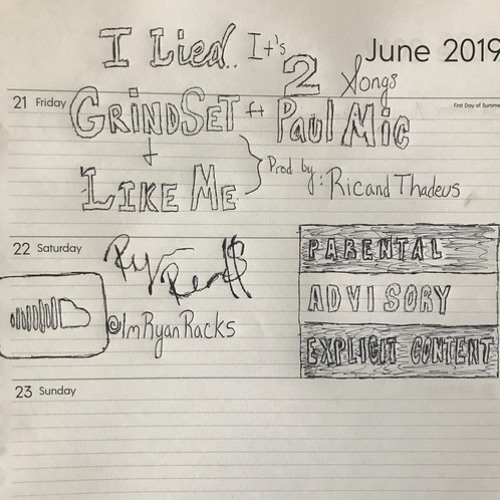 I Lied.. It's 2 Songs
June 2019
21 Friday
First Day of Summe
GRINDSET ft Paul Mic
+
LIKE ME
Prod by: Ric and Thadeus
22 Saturday
@ImRyanRacks
PARENTAL
ADVISORY
EXPLICIT CONTENT
23 Sunday